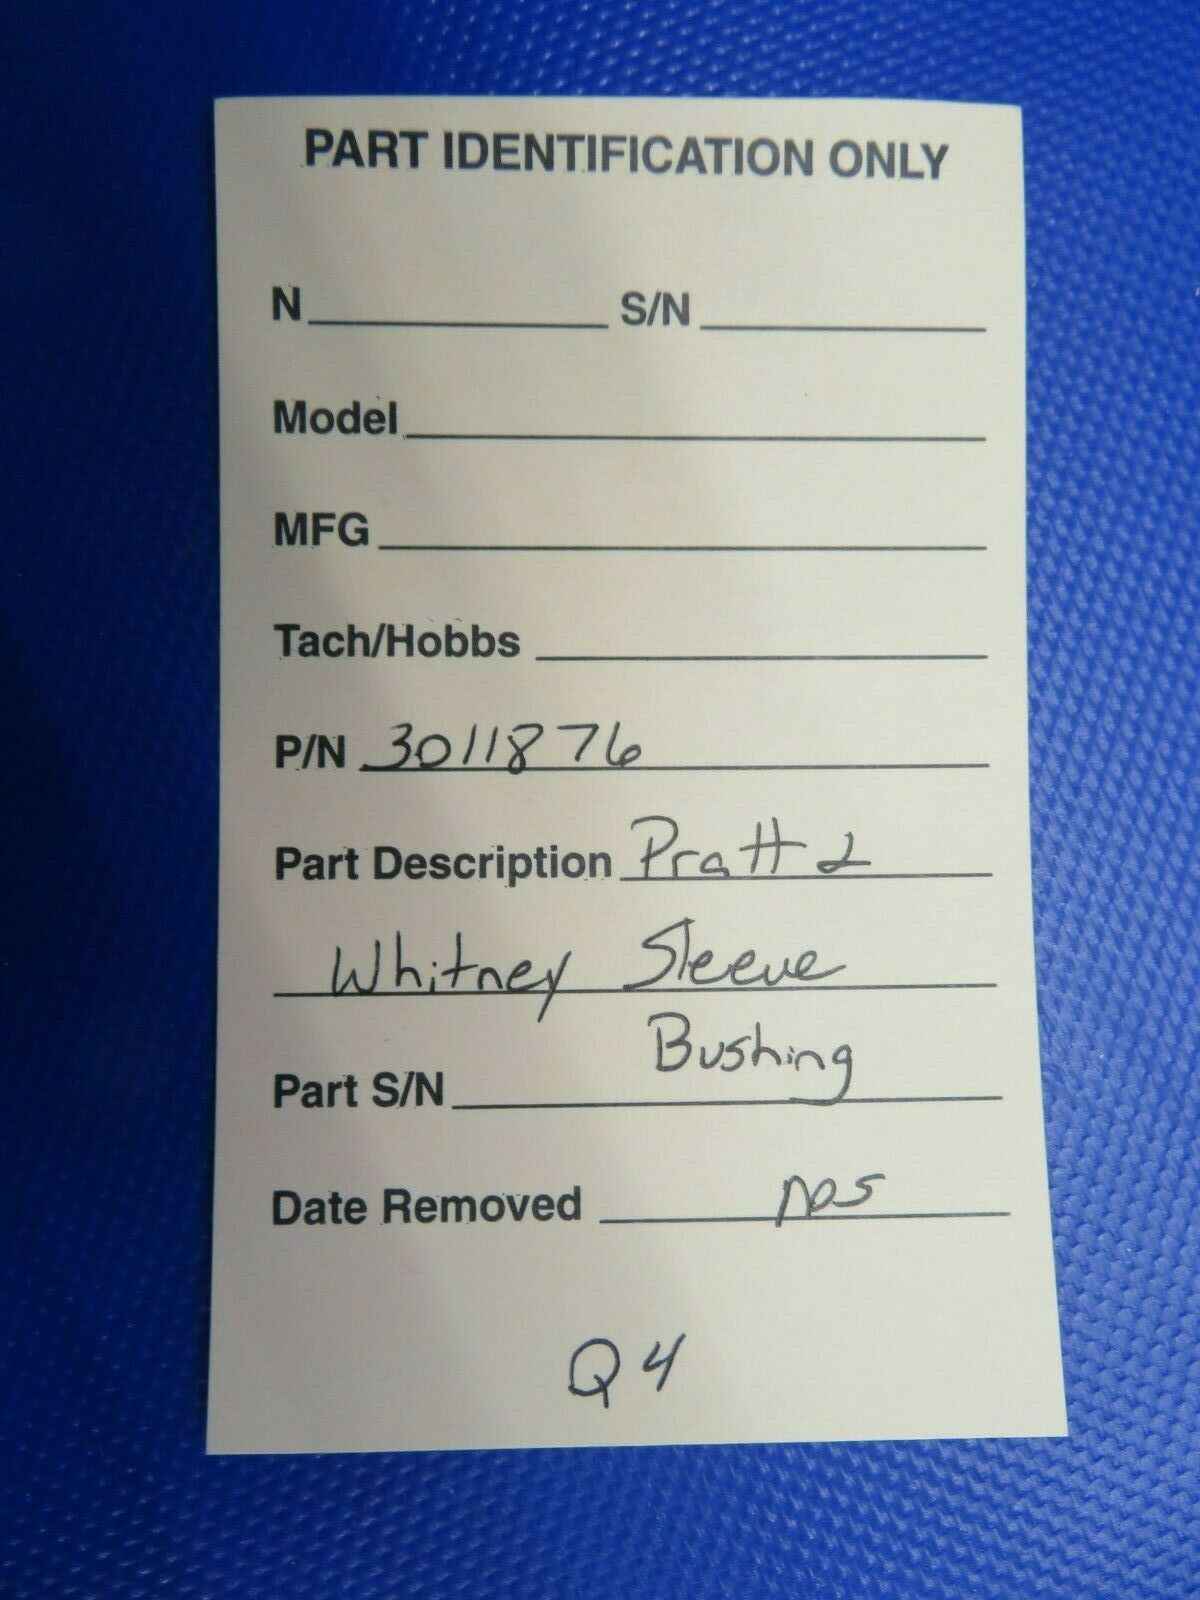 PART IDENTIFICATION ONLY
N S/N
Model
MFG
Tach/Hobbs
P/N 3011876
Part Description Pratt &
Whitney Sleeve
Bushing
Part S/N
Date Removed nos
Q4